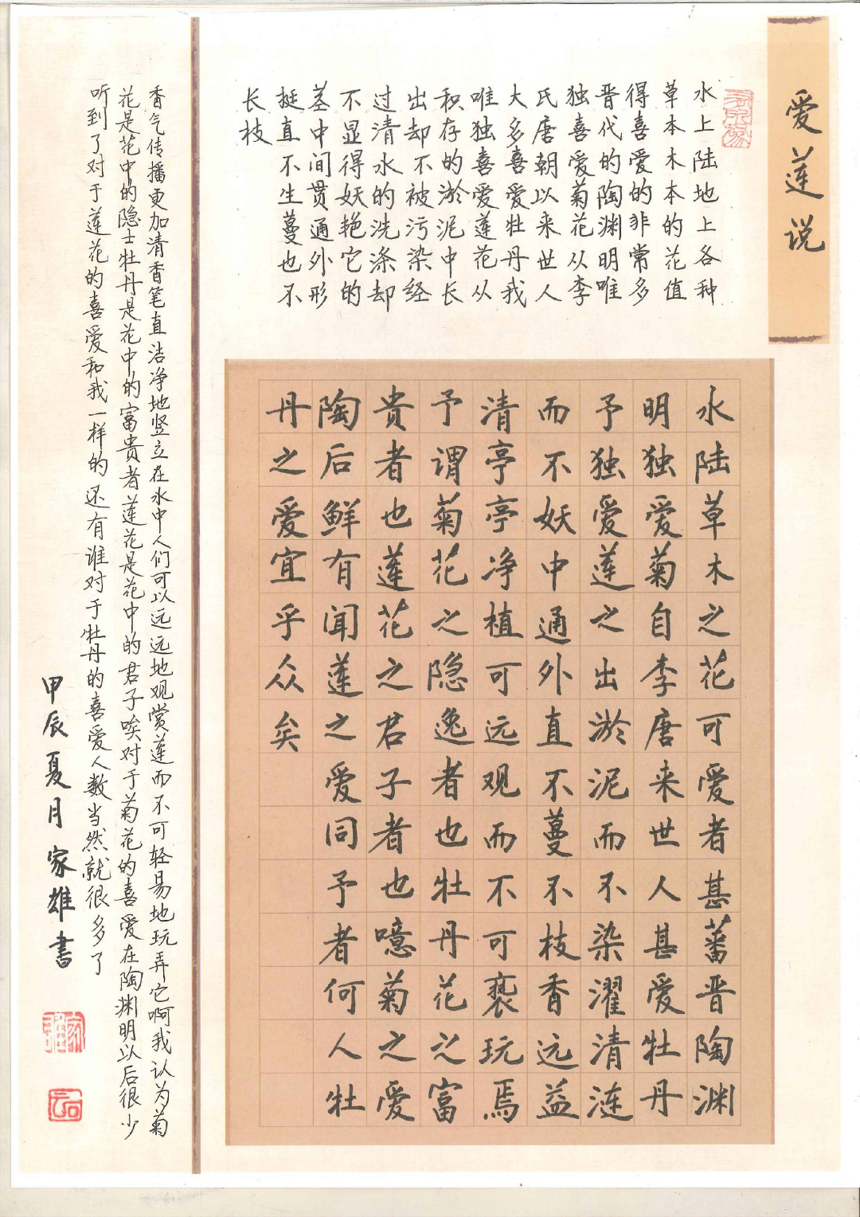 爱莲说
水上陆地上各种
草本木本的花值
得喜爱的非常多
晋代的陶渊明唯
独喜爱菊花从李
氏唐朝以来世人
大多喜爱牡丹我
唯独喜爱莲花从
积存的淤泥中长
出却不被污染经
过清水的洗涤却
不显得妖艳它的
茎中间贯通外形
挺直不生蔓也不
长枝
水陆草木之花可爱者甚蕃晋陶渊
明独爱菊自李唐来世人甚爱牡丹
予独爱莲之出淤泥而不染濯清涟
而不妖中通外直不蔓不枝香远益
清亭亭净植可远观而不可亵玩焉
予谓菊花之隐逸者也牡丹花之富
贵者也莲花之君子者也噫菊之爱
陶后鲜有闻莲之爱同予者何人牡
丹之爱宜乎众矣
香气传播更加清香笔直洁净地竖立在水中人们可以远远地观赏莲而不可轻易地玩弄它啊我认为菊
花是花中的隐士牡丹是花中的富贵者莲花是花中的君子唉对于菊花的喜爱在陶渊明以后很少
听到了对于莲花的喜爱和我一样的还有谁对于牡丹的喜爱人数当然就很多了
甲辰夏月家雄书